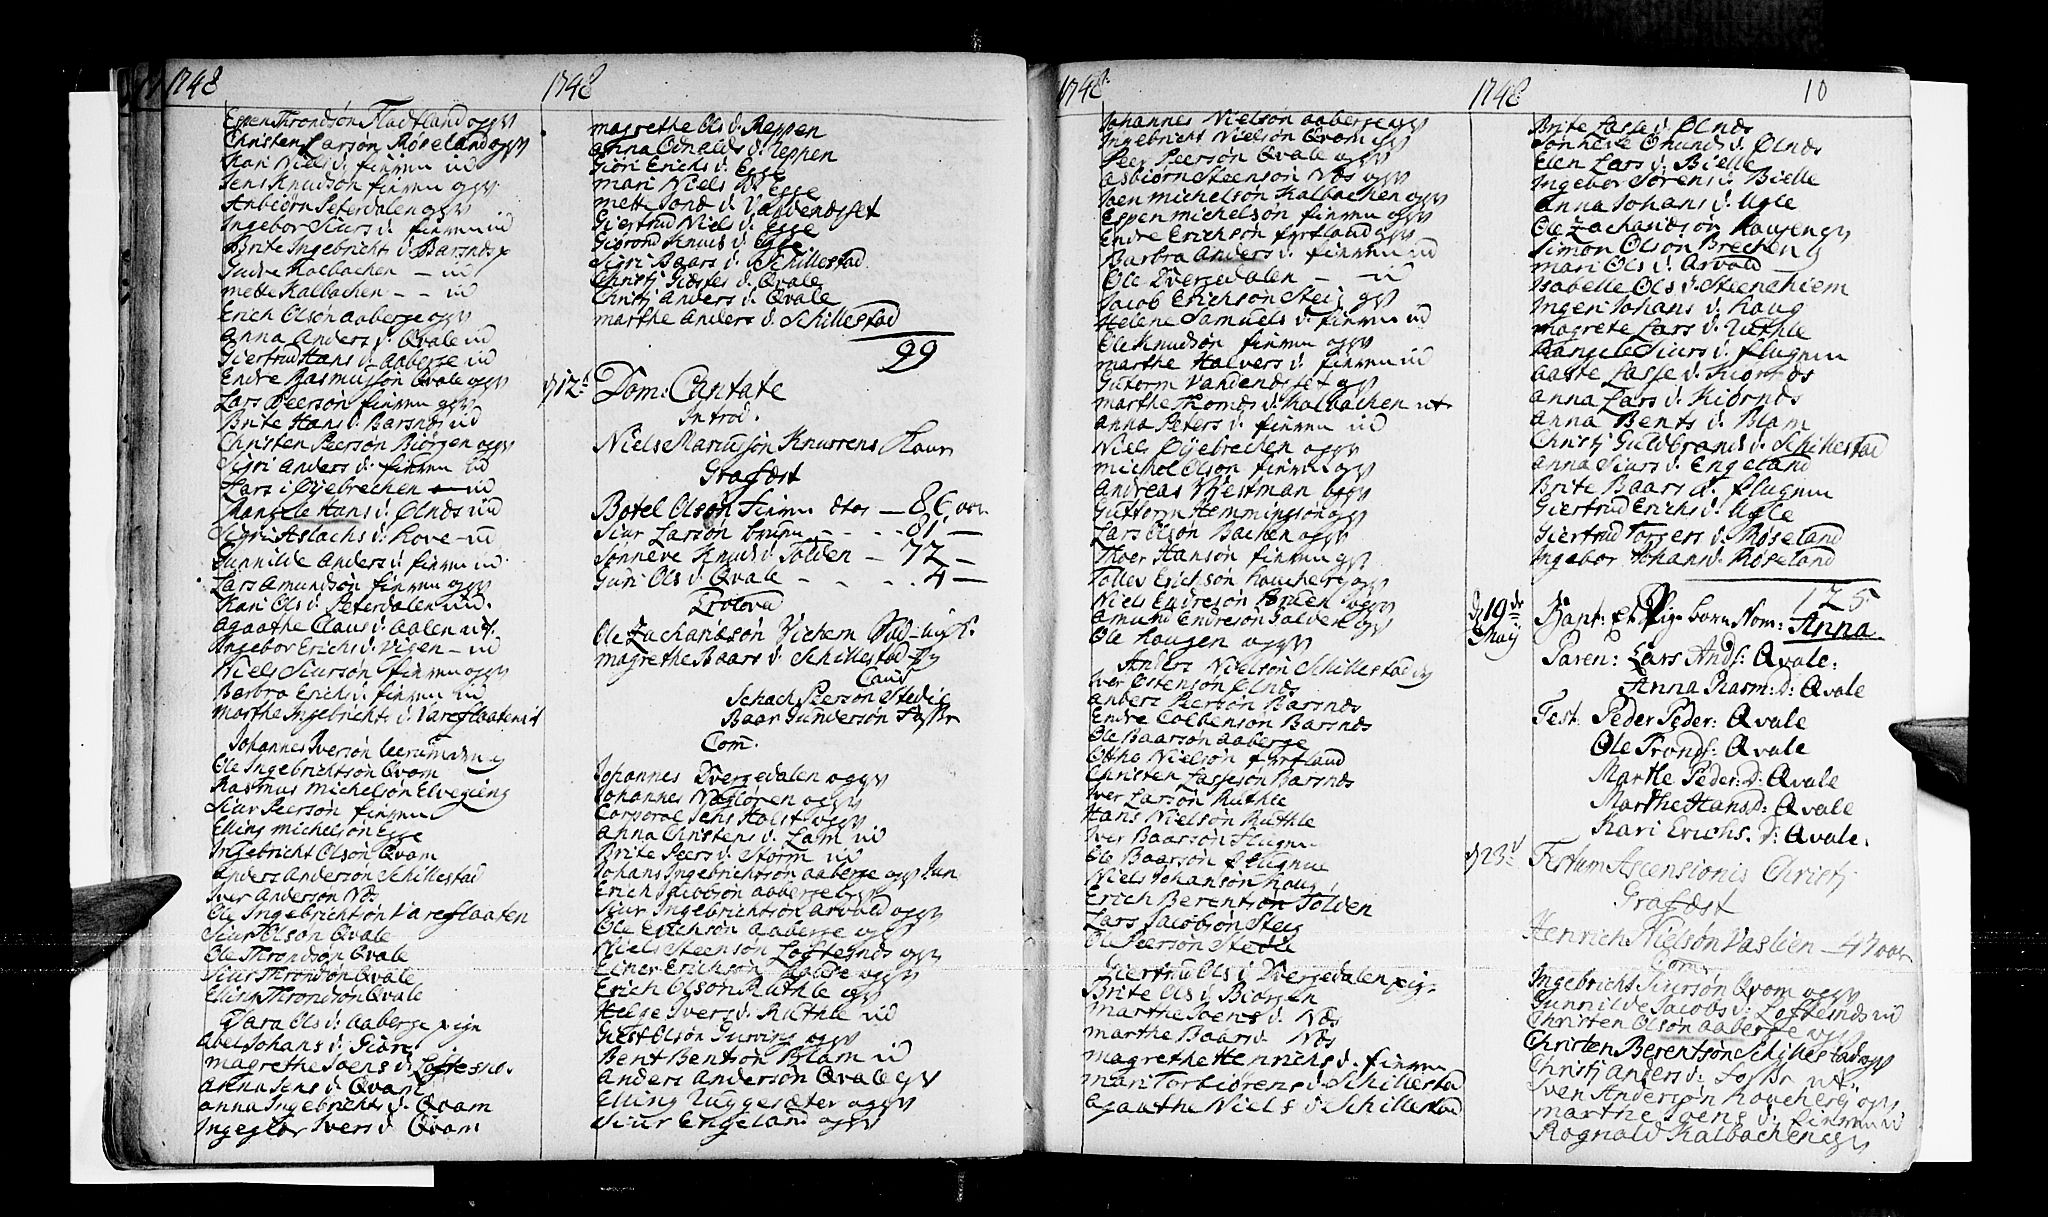 1748
Espen Throndsøn Fladtland og gv
Christen Larsøn Røseland og gv
Kari Niels d. finmu ud
Jens Knudsøn finmu og gv
Anbiørn Peterdalen og gv
Ingebor Siurs d. finmu ud
Brite Ingebricht d. Barsnæs
Kalbachen - ud
mette Kalbachen - - ud
Erich Olsøn aaberge og gv
Anna Anders d. Qvale ud
Giertrud Hans d. aaberge ud
Endre Rasmusøn Qvale og gv
Lars Peersøn finmu gv
Brite Hans d. Barsnæs ud
Christen Peersøn Biørgen og gv
Sigri Anders d. finmu ud
Lars i Øyebrechen ud
Hans d. Olnæs ud
Sigri Aslachs d. hove - ud
Gunnilde Anders d. finmu ud
Lars Amundsøn finmu og gv
Kari Ols d. Peterdalen ud.
Agaathe Claus d. aalen ut.
Ingebor Erichs d. Vigen - ud
Niels Siursøn finmu og gv
Barbra Erichs d. finmu ud
Marthe Ingebrichts d. Vareflaaten ud
Johannes Iversøn
Ole Ingebrichtsøn Qvam
Rasmus michelsøn Elvegieng
Siur Peersøn finmu
Elling michelsøn Egge
Ingebricht Olsøn Qvam
Anders Andersøn Schillestad
Iver Andersøn Næs
Ole Ingebrichtsøn Vareflaaten
Siur Olsøn Qvale
Ole Throndsøn Qvale
Siur Throndsøn Qvale
Elling Throndsøn Qvale
Ols d. Aaberge pign
Abel Johans d.
magrethe Joens d. Loftesnæs
Anna Jens d. Qvam
Anna Ingebrichts d. Qvam
Ingeglør Ivers d. Qvam
1748
magrethe Ols d. Reppen
Anna d. Reppen
Giøri Erichs d. Egge
mari Niels d. Egge
mette d. Vandendsset
Giertrud Niels d. Egge
Knuds d. Egge
Sigri Baars d. Schillestad
Christj d. Qvale
Christj Anders d. Qvale
marthe Anders d. Schillestad
99
d 12t Dom: Cantate
Introd.
Niels Mariusøn Knurrens Kaan
Grafæst
Botel Olsøn finmu - 86 aar
Siur Larsøn - - - 81 -
Sønneve Knuds d. Tolden - 77 -
Guri Ols d. Qvale - - - 4 -
Trolova
Ole Zachariæsøn
magrethe Baars d. Schillestad
Caut
Schach Peersøn Stedie
Baar Gundersøn
Com.
Johannes Dvergedalen og gv
Johannes og gv
Corporal Jens Holst og gv
Anna Christens d. Lam ud
Brite Peers d. Storm ud
Johans Ingebrichtsøn aaberge og gv
Erich Jacobsøn aaberge og gv
Siur Ingebrichtsøn Arvold og gv
Ole Erichsøn aaberge og gv
Niels Steensøn Loftesnæs og gv
Einer Erichsøn og gv
Erich Olsøn Ruthle gv
Helge Ivers d. Ruthle ud
Olsøn og gv
Bent Bentsøn Blam ud
Anders Andersøn Qvale gv
Elling Ruggesæter og gv
Siur Engeland og gv
1748
Johannes Nielsøn aaberge og gv
Ingebricht Nielsøn Qvam gv
Peer Peersøn Qvale og gv
Asbiørn Steensøn Næs og gv
Joen michelsøn Kalbachen og gv
Espen michelsøn finmu og gv
Endre Erichsøn Fyrfland og gv
Barbra Anders d. finmu ud
Ole Dvergedalen - ud
Jacob Erichsøn Steig gv
Helene Samuels d. finmu ud
Ole Knudsøn finmu og gv
marthe Halvers d. finmu ud
Gutorm Vandendsset gv
marthe Thomæs d. Kalbachen ut.
Anna Peters d. finmu ud
Niels Øyebrechen og gv
michel Olsøn finmu og gv
Andreas Westman og gv
Guttorm Hemmingsøn og gv
Lars Olsøn Bachen og gv
Thoer Hansøn finmu gv
Tolles Erichsøn og gv
Niels Endresøn og gv
Amund Endresøn og gv
Ole Haugen og gv
Anders Nielsøn Schillestad
Iver Ostensøn Olnæs
Anders Peersøn Barsnæs
Endre Colbensøn Barsnæs
Ole Baarsøn aaberge
Otthe Nielsøn Fyrfland
Christen Lassesøn Barsnæs
Iver Larsøn Ruthle
Hans Nielsøn Ruthle
Iver Baarsøn Flugmu
Ole Baarsøn Flugmu
Niels Johansøn Haug
Erich Berentsøn Tolden
Lars Jacobsøn Steig
Ole Peersøn Stedie
Giertrud Ols d. Dvergedalen pig.
Brite Ols d. Biørgen
Marthe Joens d. Næs
marthe Baars d. Næs
magrethe Henrichs d. finmu
mari Torbiørens d. Schillestad
Agaathe Niels d. Schillestad
1748 10
Brite Lasse d. Olnæs
Sønneve Omunds d. Olnæs
Elen Lars d. Bielle
Ingebor Sørens d. Bielle
Anna Johans d. Ugle
Ole Zachariæsøn Haugen gv
Simon Olsøn Brechen
mari Ols d. Arvold
Isabelle Ols d. Steenehiem
Ingeri Johans d. Haug
magrete Lars d. Ruthle
Siurs d. Flugmu
Aaste Lasse d. Kiørnæs
Anna Lars d. Kiørnæs
Anna Bents d. Blam
Christj Guldbrands d. Schillestad
Anna Siurs d. Engeland
Brite Baars d. Flugmu
Giertrud Erichs d. Ugle
Giertrud Torgers d. Røseland
Ingebor Johan d. Røseland
125
D 19de Maij Bapt: et Pige barn Nom: Anna
Paren: Lars Ands: Qvale:
Anna Rasm: D: Qvale
Test: Peder Peder: Qvale
Ole Tronds: Qvale
Marthe Peder: D: Qvale
Marthe Hans D: Qvale
Kari Erichs. D: Qvale.
d 23d Festum Ascensionis Christj
Grafæst
Henrich Nielsøn Vaslien - 47 aar
Com.
Ingebricht Siursøn Qvam og gv
Gunnilde Jacobs d. Loftesnæs ud
Christen Olsøn aaberge og gv
Christen Berentsøn Schillestad og gv
Christj Anders d. ut.
Sven Andersøn og gv
marthe Svens d. finmu ud
Rognald Kalbachen gv